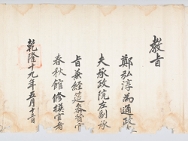 敎旨
鄭弘淳為通政
夫承政院左副承
旨兼經筵參贊官
春秋館修撰官者
乾隆十九年五月 日